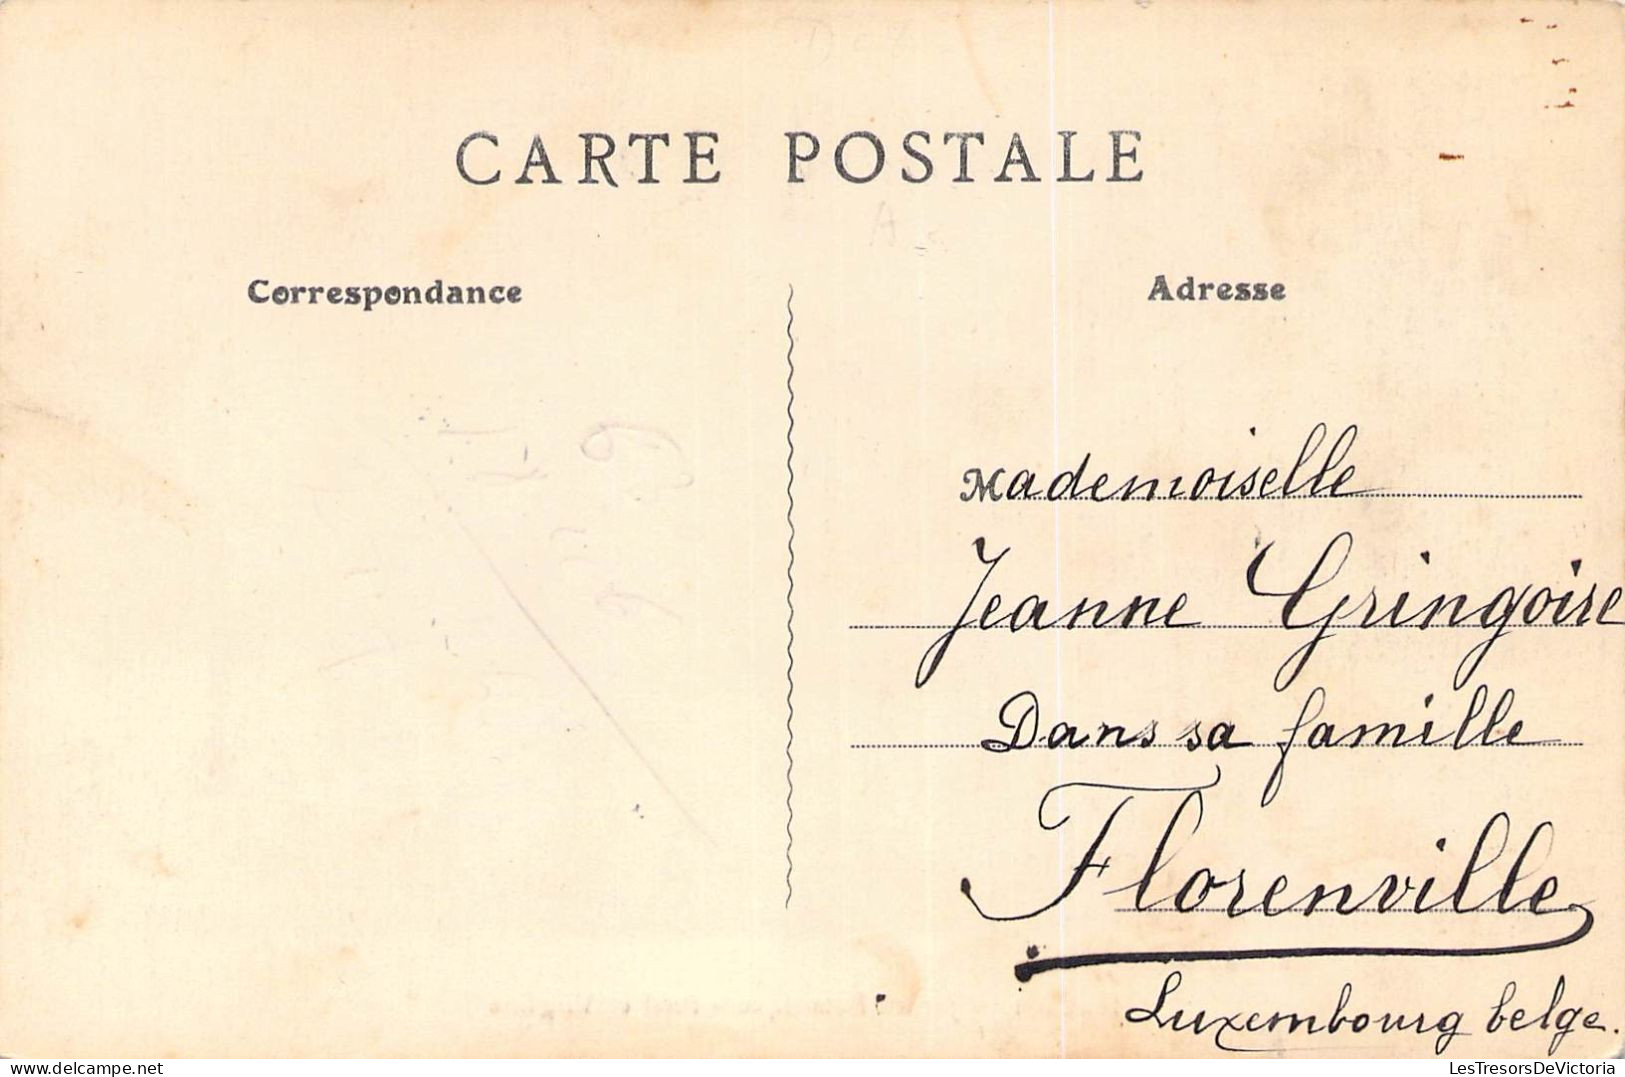 CARTE POSTALE
Correspondance
Adresse
Mademoiselle
Jeanne Gringoire
Dans sa famille
Florenville
Luxembourg belge.
LesTresorsDeVictoria